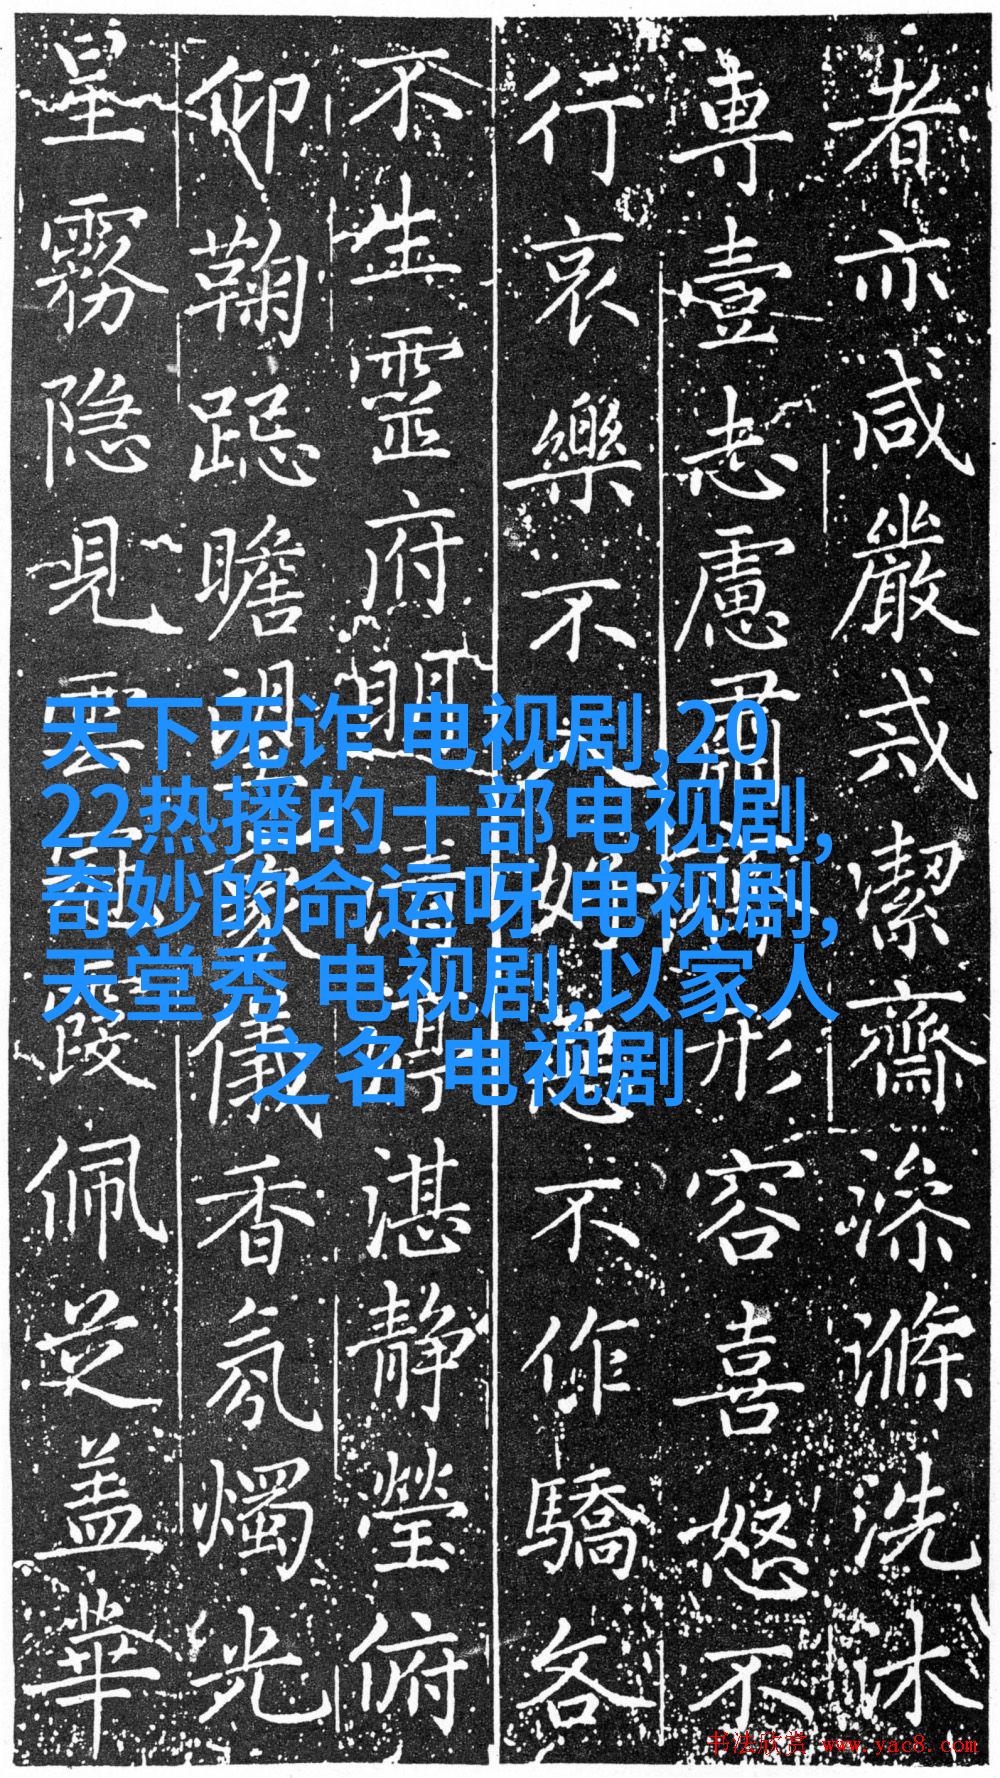 者亦咸嚴戒潔齋澡滌洗沐
専壹志慮肅形容喜怒不
行哀樂不不作驕各
不生靈府湛静瑩俯
仰鞠跽瞻儀香氛燭光
星霧隐見雲霞佩芝盖華
天下无诈 电视剧,20
22热播的十部电视剧,
奇妙的命运呀 电视剧,
天堂秀 电视剧,以家人
之名 电视剧
书法欣赏 www.yac8.com